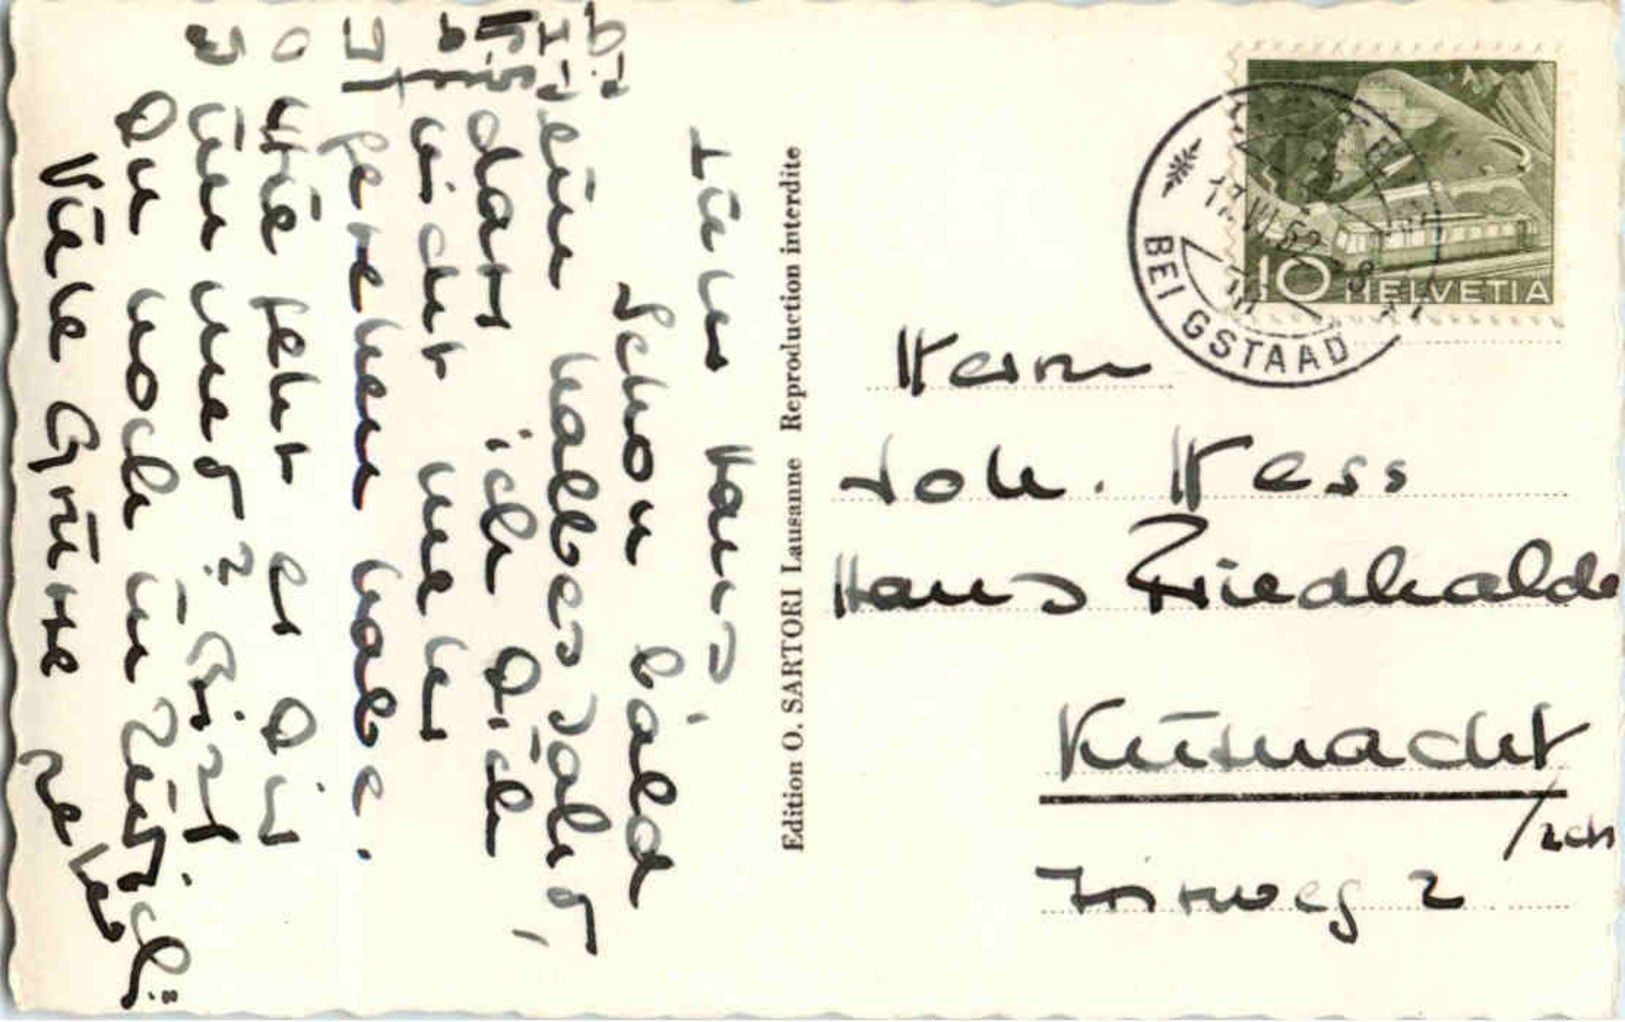 Lieber Hans,
Schon bald
ein halbes Jahr,
dass ich Dich
nicht mehr
gesehen habe.
Wie geht es Dir
immer? Bist
Du noch in Zürich?
Viele Grüsse
Edition O. SARTORI Lausanne Reproduction interdite
BEI GSTAAD
17.VI.52
10 HELVETIA
Herrn
Joh. Hess
Haus Friedhalde
Küsnacht
/ZCH
2